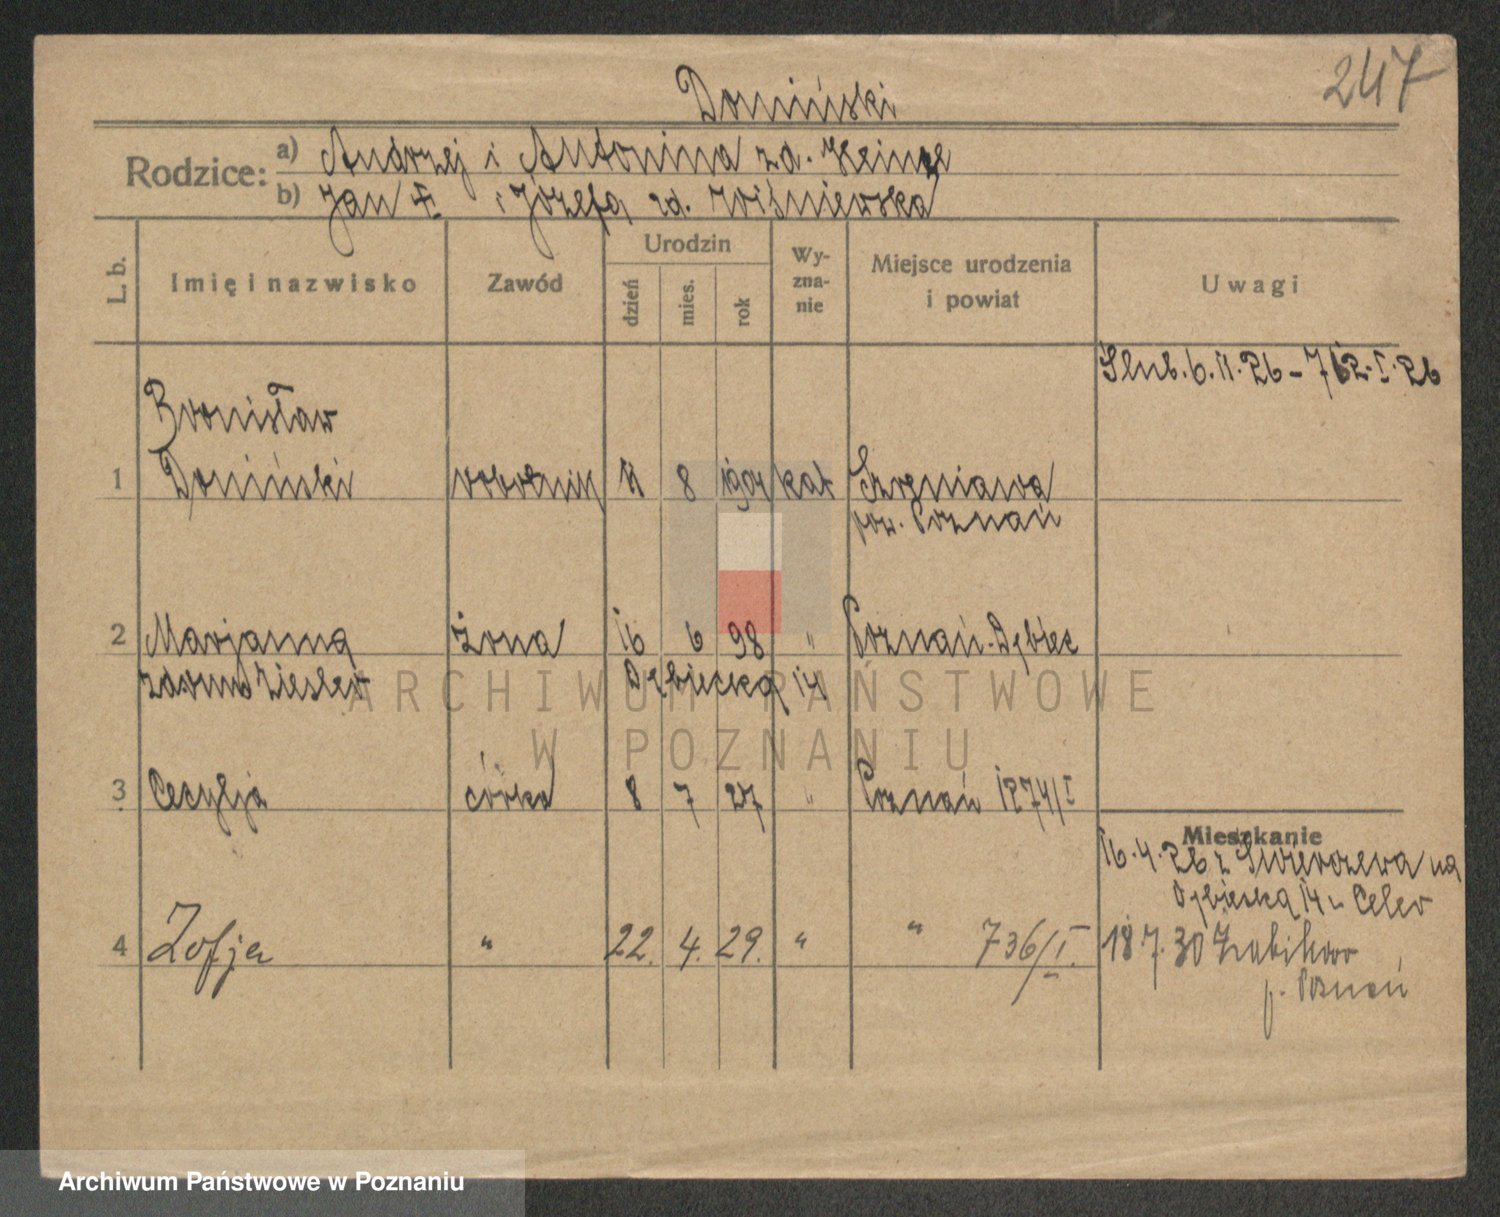 247
Domiński
Rodzice:
a) Andrzej i Antonina zd. Heinze
b) Jan † i Józefa zd. Wiśniewska
L. b.
Imię i nazwisko
Zawód
Urodzin
dzień
mies.
rok
Wy-
zna-
nie
Miejsce urodzenia
i powiat
Uwagi
Ślub. 6. II. 26 - 762. I. 26
Bronisław
1 Domiński robotnik 11 8 1904 kat Szreniawa
pow. Poznań
2 Marjanna żona 16 6 98 " Poznań-Dębiec
zdomu
Dębiecka 14
3 Cecylja córka 8 7 27 " Poznań 1874/I
Mieszkanie
16. 4. 26 z Świerczewa na
Dębiecką 14
4 Zofja " 22. 4. 29. " " 736/I.
18 7. 30 Żabikowo
p. Poznań
ARCHIWUM PAŃSTWOWE
W POZNANIU
Archiwum Państwowe w Poznaniu